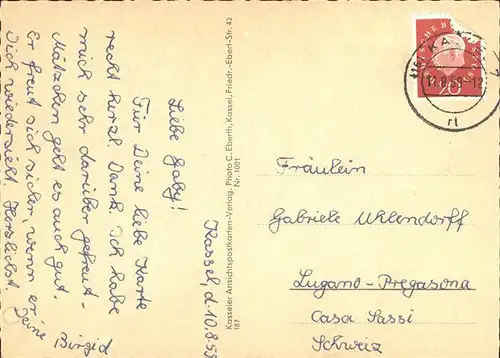 Kassel, d. 10.8.59
Liebe Gaby!
Für Deine liebe Karte
recht herzl. Dank. Ich habe
mich sehr darüber gefreut.
Mätzchen geht es auch gut.
Er freut sich sicher, wenn er
Dich wiedersieht. Herzlichst
Deine Birgid
Kasseler Ansichtspostkarten-Verlag. Photo C. Eberth, Kassel, Friedr.-Ebert-Str. 42
187 Nr. 1001
Fräulein
Gabriele Uhlendorff
Lugano-Pregasona
Casa Sassi
Schweiz
20
11.8.59-12